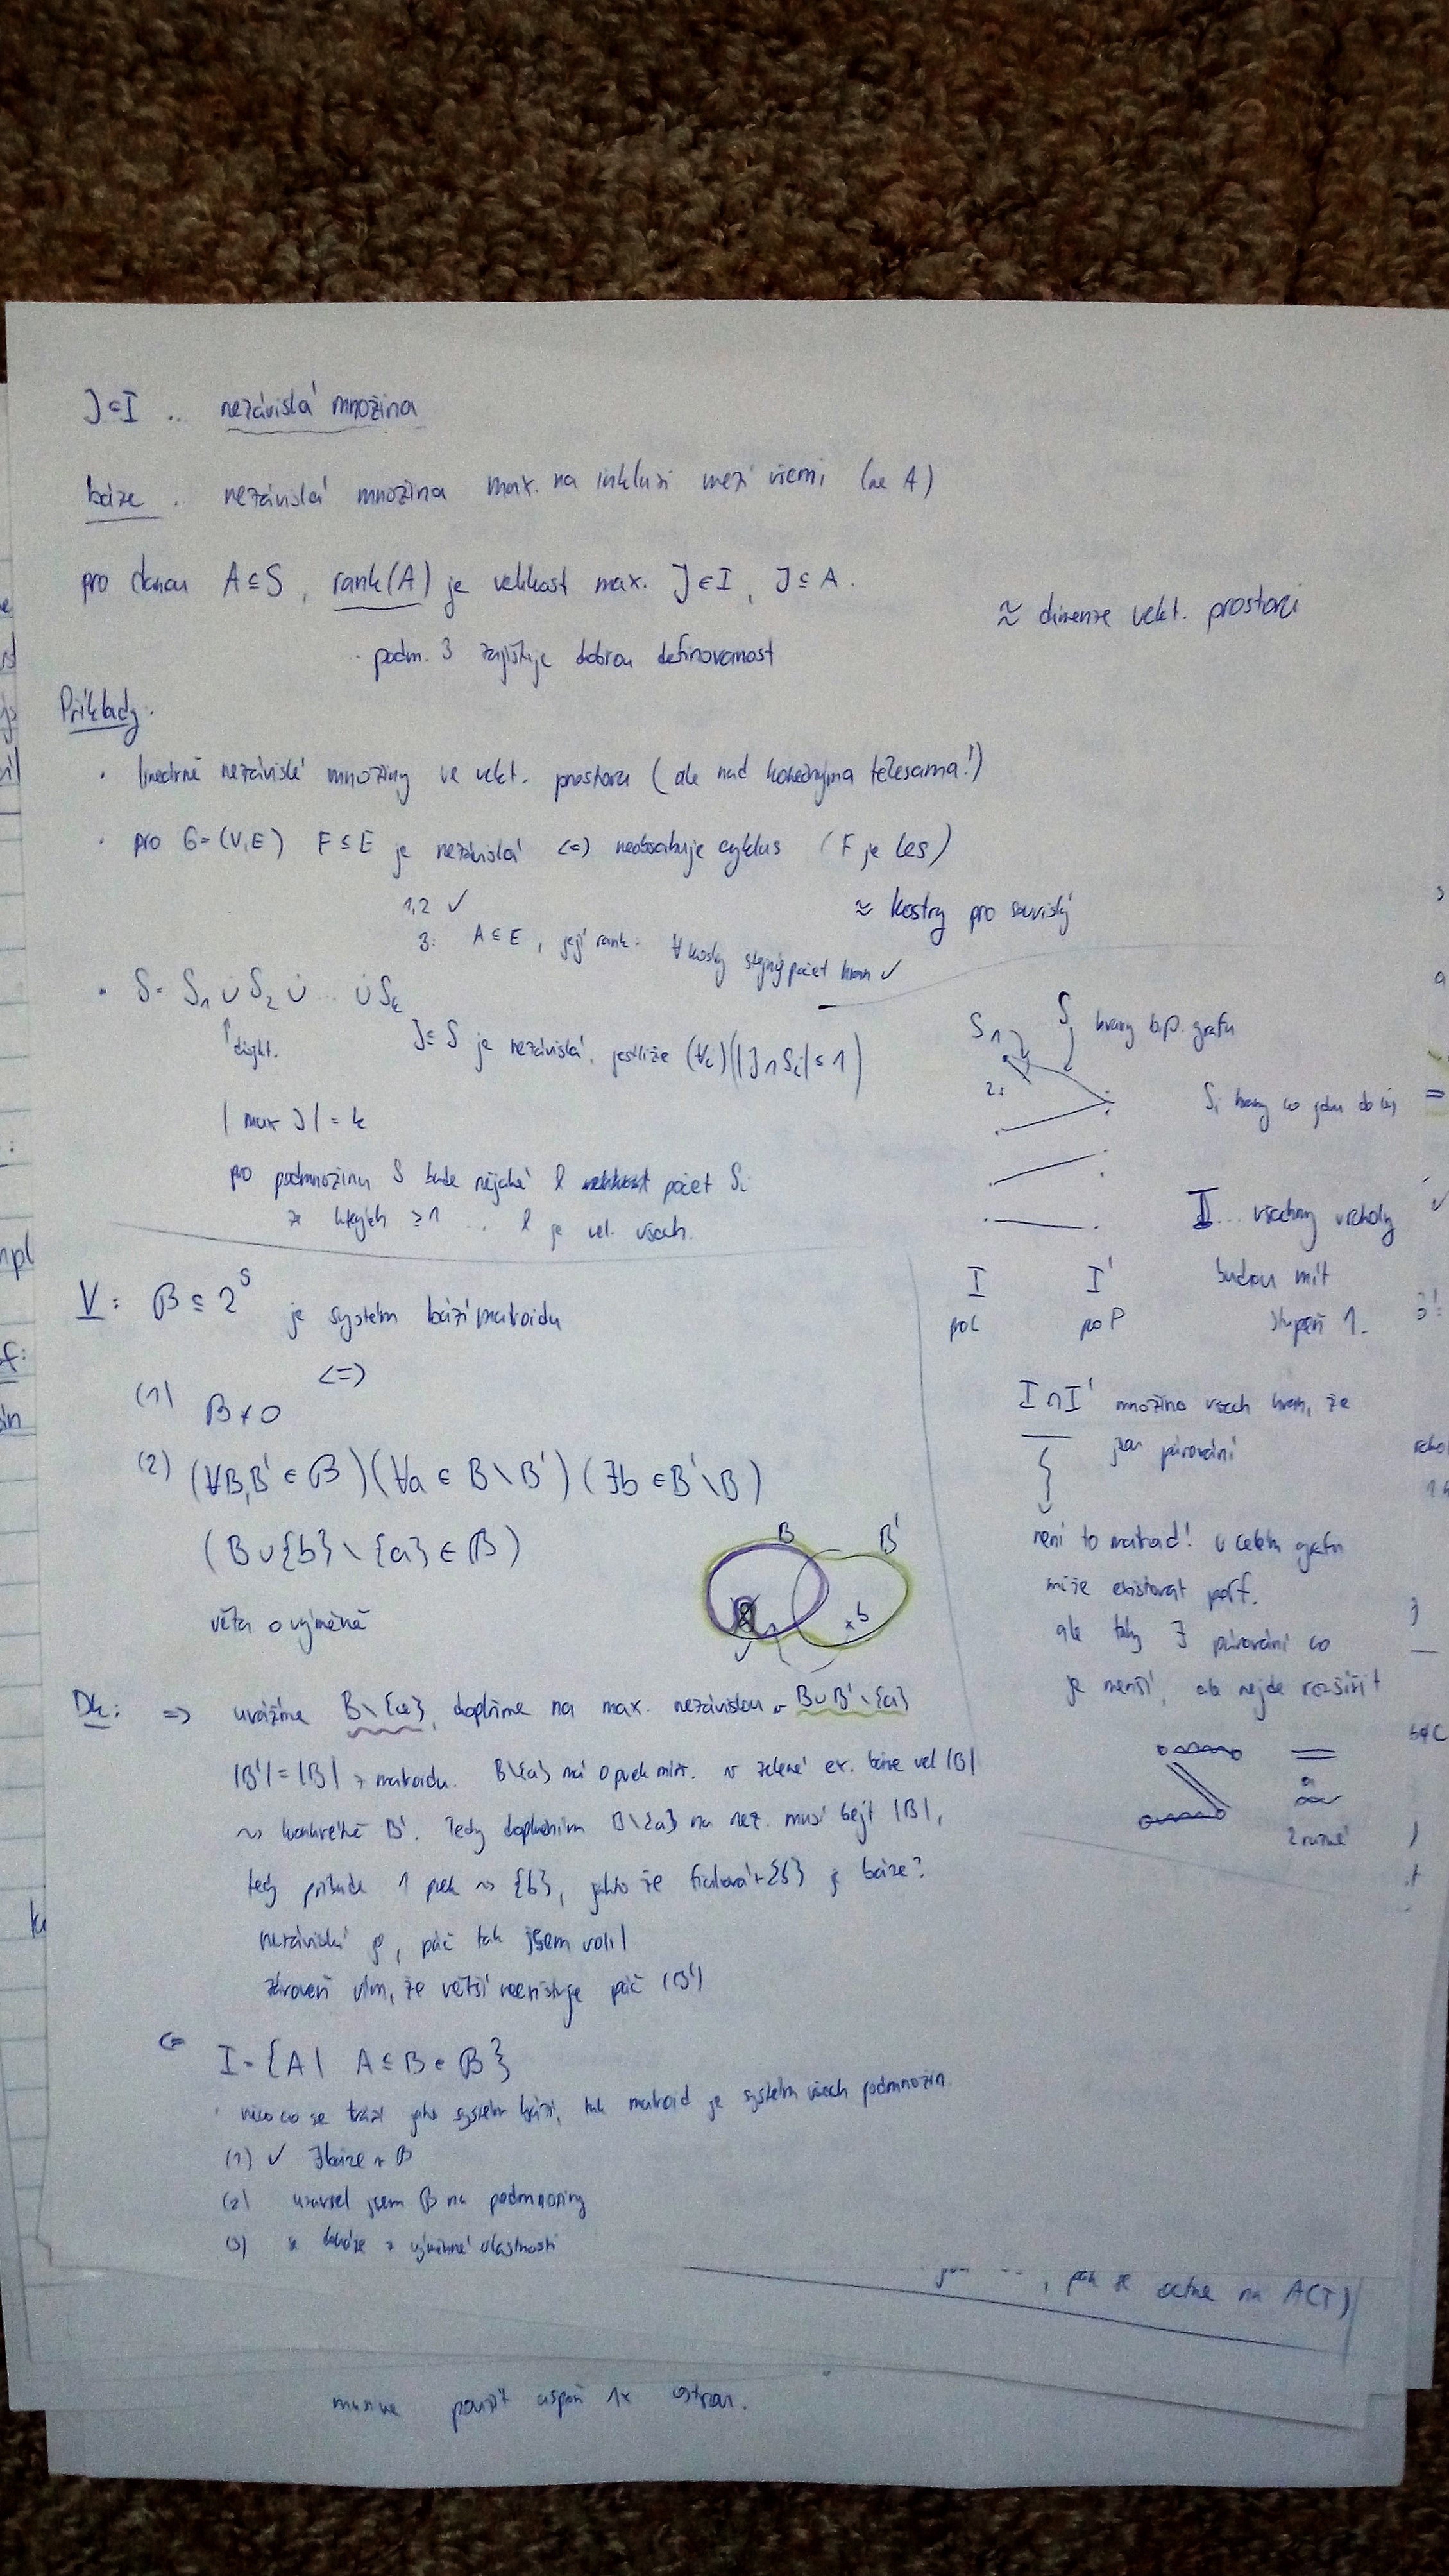 J∈I .. nezávislá množina
báze . nezávislá množina max. na inkluzi mezi všemi (ne A)
pro danou A⊆S, rank(A) je velikost max. J∈I, J⊆A.
≈ dimenze vekt. prostorů
podm. 3 zajišťuje dobrou definovanost
Příklady:
· lineárně nezávislé množiny ve vekt. prostoru (ale nad konečnýma tělesama!)
· pro G=(V,E) F⊆E je nezávislá <=> neobsahuje cyklus (F je les)
1,2 ✓
≈ kostry pro souvislý
3: A⊆E, její rank: ∀ kostry stejný počet hran ✓
· S = S₁ ∪̇ S₂ ∪̇ ... ∪̇ Sₖ
↑ disjkt.
J⊆S je nezávislá, jestliže (∀i)(|J∩Sᵢ|≤1)
| max J | = k
pro podmnožinu S bude nějaké l počet Sᵢ
ze kterých ≥1 ... l je vel. všech.
S₁ S hrany bip. grafu
Sᵢ hrany co jdou do
I... všechny vrcholy
budou mít
stupeň 1.
I I'
po L po P
I∩I' množina všech hran, že
jsou párování
není to matroid! v celém grafu
může existovat perf.
ale taky ∃ párování co
je menší, ale nejde rozšířit
2 různé
V: ℬ ⊆ 2^S je systém bází matroidu
<=>
(1) ℬ ≠ 0
(2) (∀B,B'∈ℬ)(∀a∈B\B')(∃b∈B'\B)
(B∪{b}\{a}∈ℬ)
B B'
b
věta o výměně
Dk: => uvážíme B\{a}, doplníme na max. nezávislou v B∪B'\{a}
|B'|=|B| z matroidu. B\{a} má o prvek míň. v zelené ex. báze vel |B|
~> konkrétně B'. Tedy doplněním B\{a} na nez. musí bejt |B|,
tedy přibude 1 prvek ~> {b}, jakto že fialová+{b} je báze?
nezávislá je, páč tak jsem volil
zároveň vím, že větší neexistuje páč |B'|
<= I = {A | A⊆B∈ℬ}
něco co se tváří jako systém bází, tak matroid je systém všech podmnožin.
(1) ✓ ∃ báze v ℬ
(2) uzavřel jsem ℬ na podmnožiny
(3) se dokáže z výměnné vlastnosti
, pak se octne na A(T)
musíme použít aspoň 1x